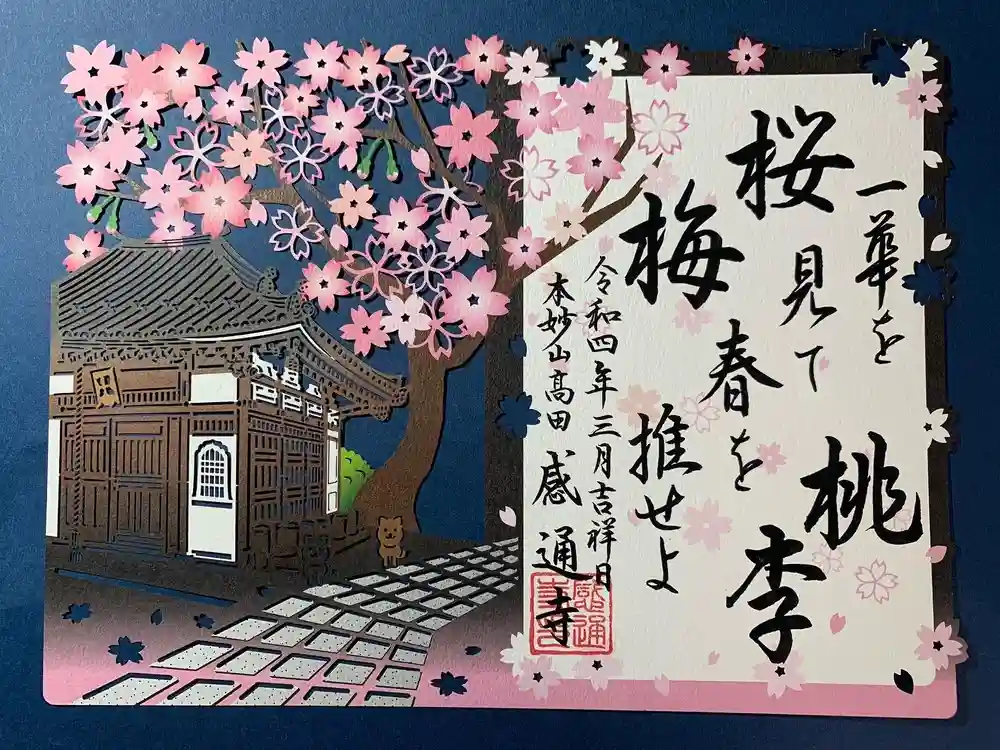 桜梅桃李
一華を
見て
春を
推せよ
令和四年三月吉祥日
本妙山高田 感通寺